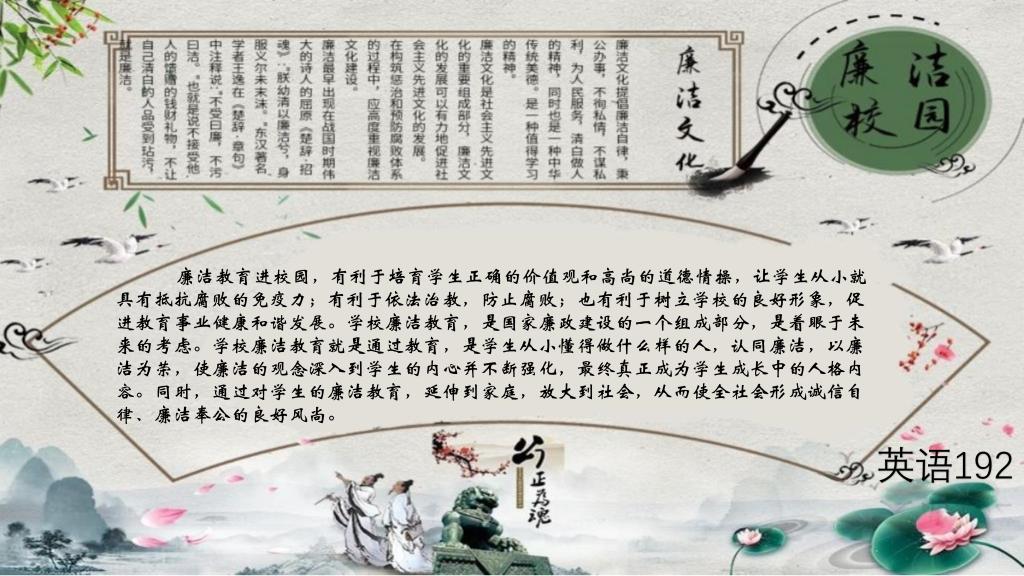 廉洁
校园
廉洁文化
廉洁文化提倡廉洁自律，秉
公办事，不徇私情，不谋私
利，为人民服务，清白做人
的精神，同时也是一种中华
传统美德。是一种值得学习
的精神。
廉洁文化是社会主义先进文
化的重要组成部分，廉洁文
化的发展可以有力地促进社
会主义先进文化的发展。
在构筑惩治和预防腐败体系
的过程中，应高度重视廉洁
文化建设。
廉洁最早出现在战国时期伟
大的诗人的屈原《楚辞·招
魂》：“朕幼清以廉洁兮，身
服义尔未末沫。”东汉著名
学者王逸在《楚辞·章句》
中注释说：“不受曰廉，不污
曰洁。”也就是说不接受他
人的馈赠的钱财礼物，不让
自己清白的人品受到玷污，
就是廉洁。
廉洁教育进校园，有利于培育学生正确的价值观和高尚的道德情操，让学生从小就
具有抵抗腐败的免疫力；有利于依法治教，防止腐败；也有利于树立学校的良好形象，促
进教育事业健康和谐发展。学校廉洁教育，是国家廉政建设的一个组成部分，是着眼于未
来的考虑。学校廉洁教育就是通过教育，是学生从小懂得做什么样的人，认同廉洁，以廉
洁为荣，使廉洁的观念深入到学生的内心并不断强化，最终真正成为学生成长中的人格内
容。同时，通过对学生的廉洁教育，延伸到家庭，放大到社会，从而使全社会形成诚信自
律、廉洁奉公的良好风尚。
公正为魂
英语192